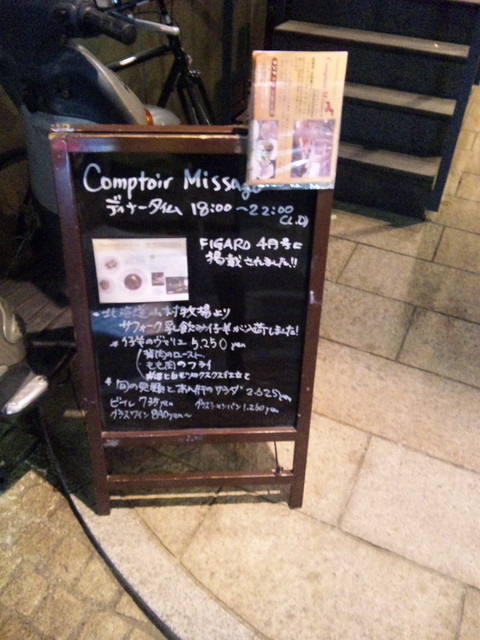 Comptoir Missago
ディナータイム 18:00~22:00
(L.O)
FIGARO 4月号に
掲載されました!!
北海道 山村牧場より
サフォーク乳飲み仔羊が入荷しました!
仔羊のヴァリエ 5,250 yen
のロースト
もも肉のフライ
クスクス仕立て
旬の発類とあん肝のサラダ 2,625yen
ビール 735yen グラスシャンパン 1,260yen
グラスワイン 840yen~